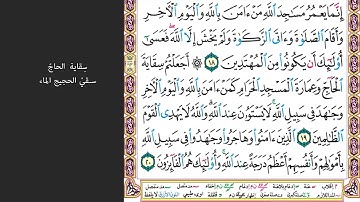 إِنَّمَا يَعْمُرُ مَسَٰجِدَ ٱللَّهِ مَنْ ءَامَنَ بِٱللَّهِ وَٱلْيَوْمِ ٱلْءَاخِرِ
وَأَقَامَ ٱلصَّلَوٰةَ وَءَاتَى ٱلزَّكَوٰةَ وَلَمْ يَخْشَ إِلَّا ٱللَّهَ فَعَسَىٰٓ
أُو۟لَٰٓئِكَ أَن يَكُونُوا۟ مِنَ ٱلْمُهْتَدِينَ ١٨ أَجَعَلْتُمْ سِقَايَةَ
ٱلْحَآجِّ وَعِمَارَةَ ٱلْمَسْجِدِ ٱلْحَرَامِ كَمَنْ ءَامَنَ بِٱللَّهِ وَٱلْيَوْمِ ٱلْءَاخِرِ
وَجَٰهَدَ فِى سَبِيلِ ٱللَّهِ لَا يَسْتَوُۥنَ عِندَ ٱللَّهِ وَٱللَّهُ لَا يَهْدِى ٱلْقَوْمَ
ٱلظَّٰلِمِينَ ١٩ ٱلَّذِينَ ءَامَنُوا۟ وَهَاجَرُوا۟ وَجَٰهَدُوا۟ فِى سَبِيلِ ٱللَّهِ
بِأَمْوَٰلِهِمْ وَأَنفُسِهِمْ أَعْظَمُ دَرَجَةً عِندَ ٱللَّهِ وَأُو۟لَٰٓئِكَ هُمُ ٱلْفَآئِزُونَ ٢٠
سِقاية الحاجّ
سقيَ الحجيج الماء